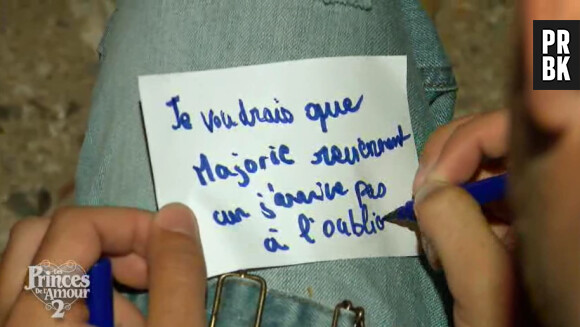 PR
BK
Je voudrais que
Marjorie reviennent
car j'arrive pas
à l'oublier
Les
Princes
De L'Amour
2